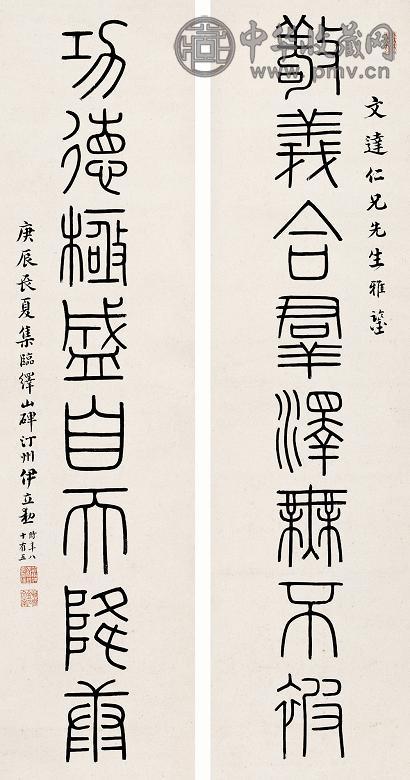 中华收藏网
www.pmv.cn
文達仁兄先生雅鑒
敬義合羣澤無不被
功德極盛自天降康
庚辰長夏集臨繹山碑汀州伊立勳時年八
十有五